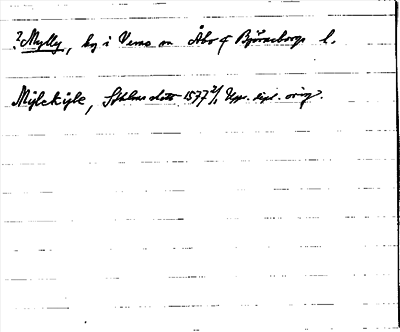 ? Mylly, by i Vemo sn Åbo & Björneborgs l.
Mÿlckÿle, Sthlms slott 1577 2/1 Upps. dipl. orig.